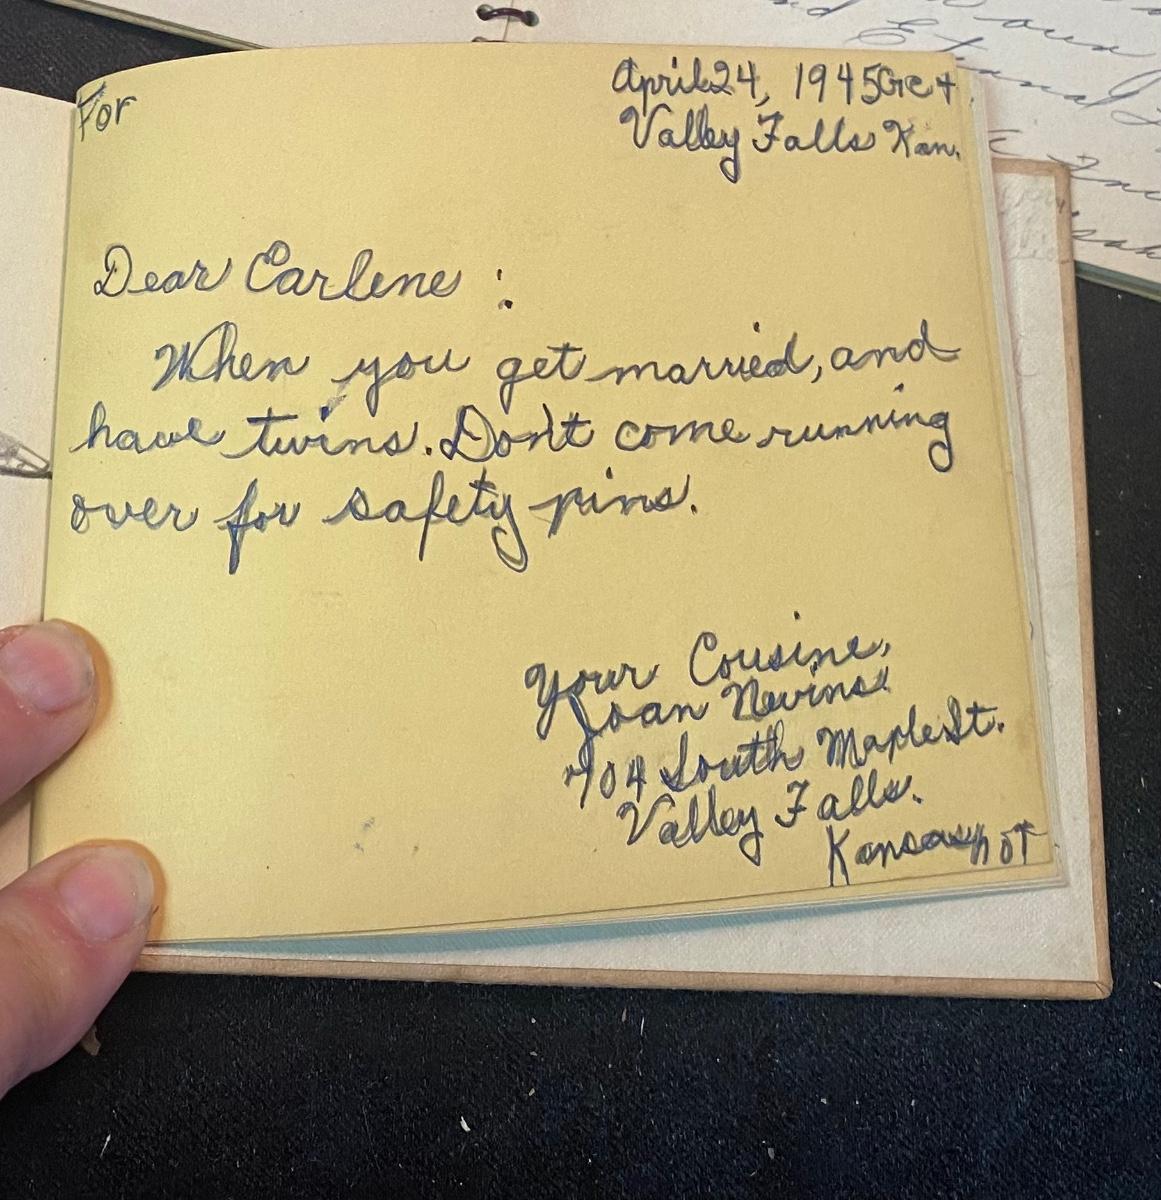 For
April 24, 1945 Get
Valley Falls Kan.
Dear Carlene :
When you get married, and
have twins. Don't come running
over for safety pins.
Your Cousine,
Joan Nevins.
704 South Maple St.
Valley Falls.
Kansas not